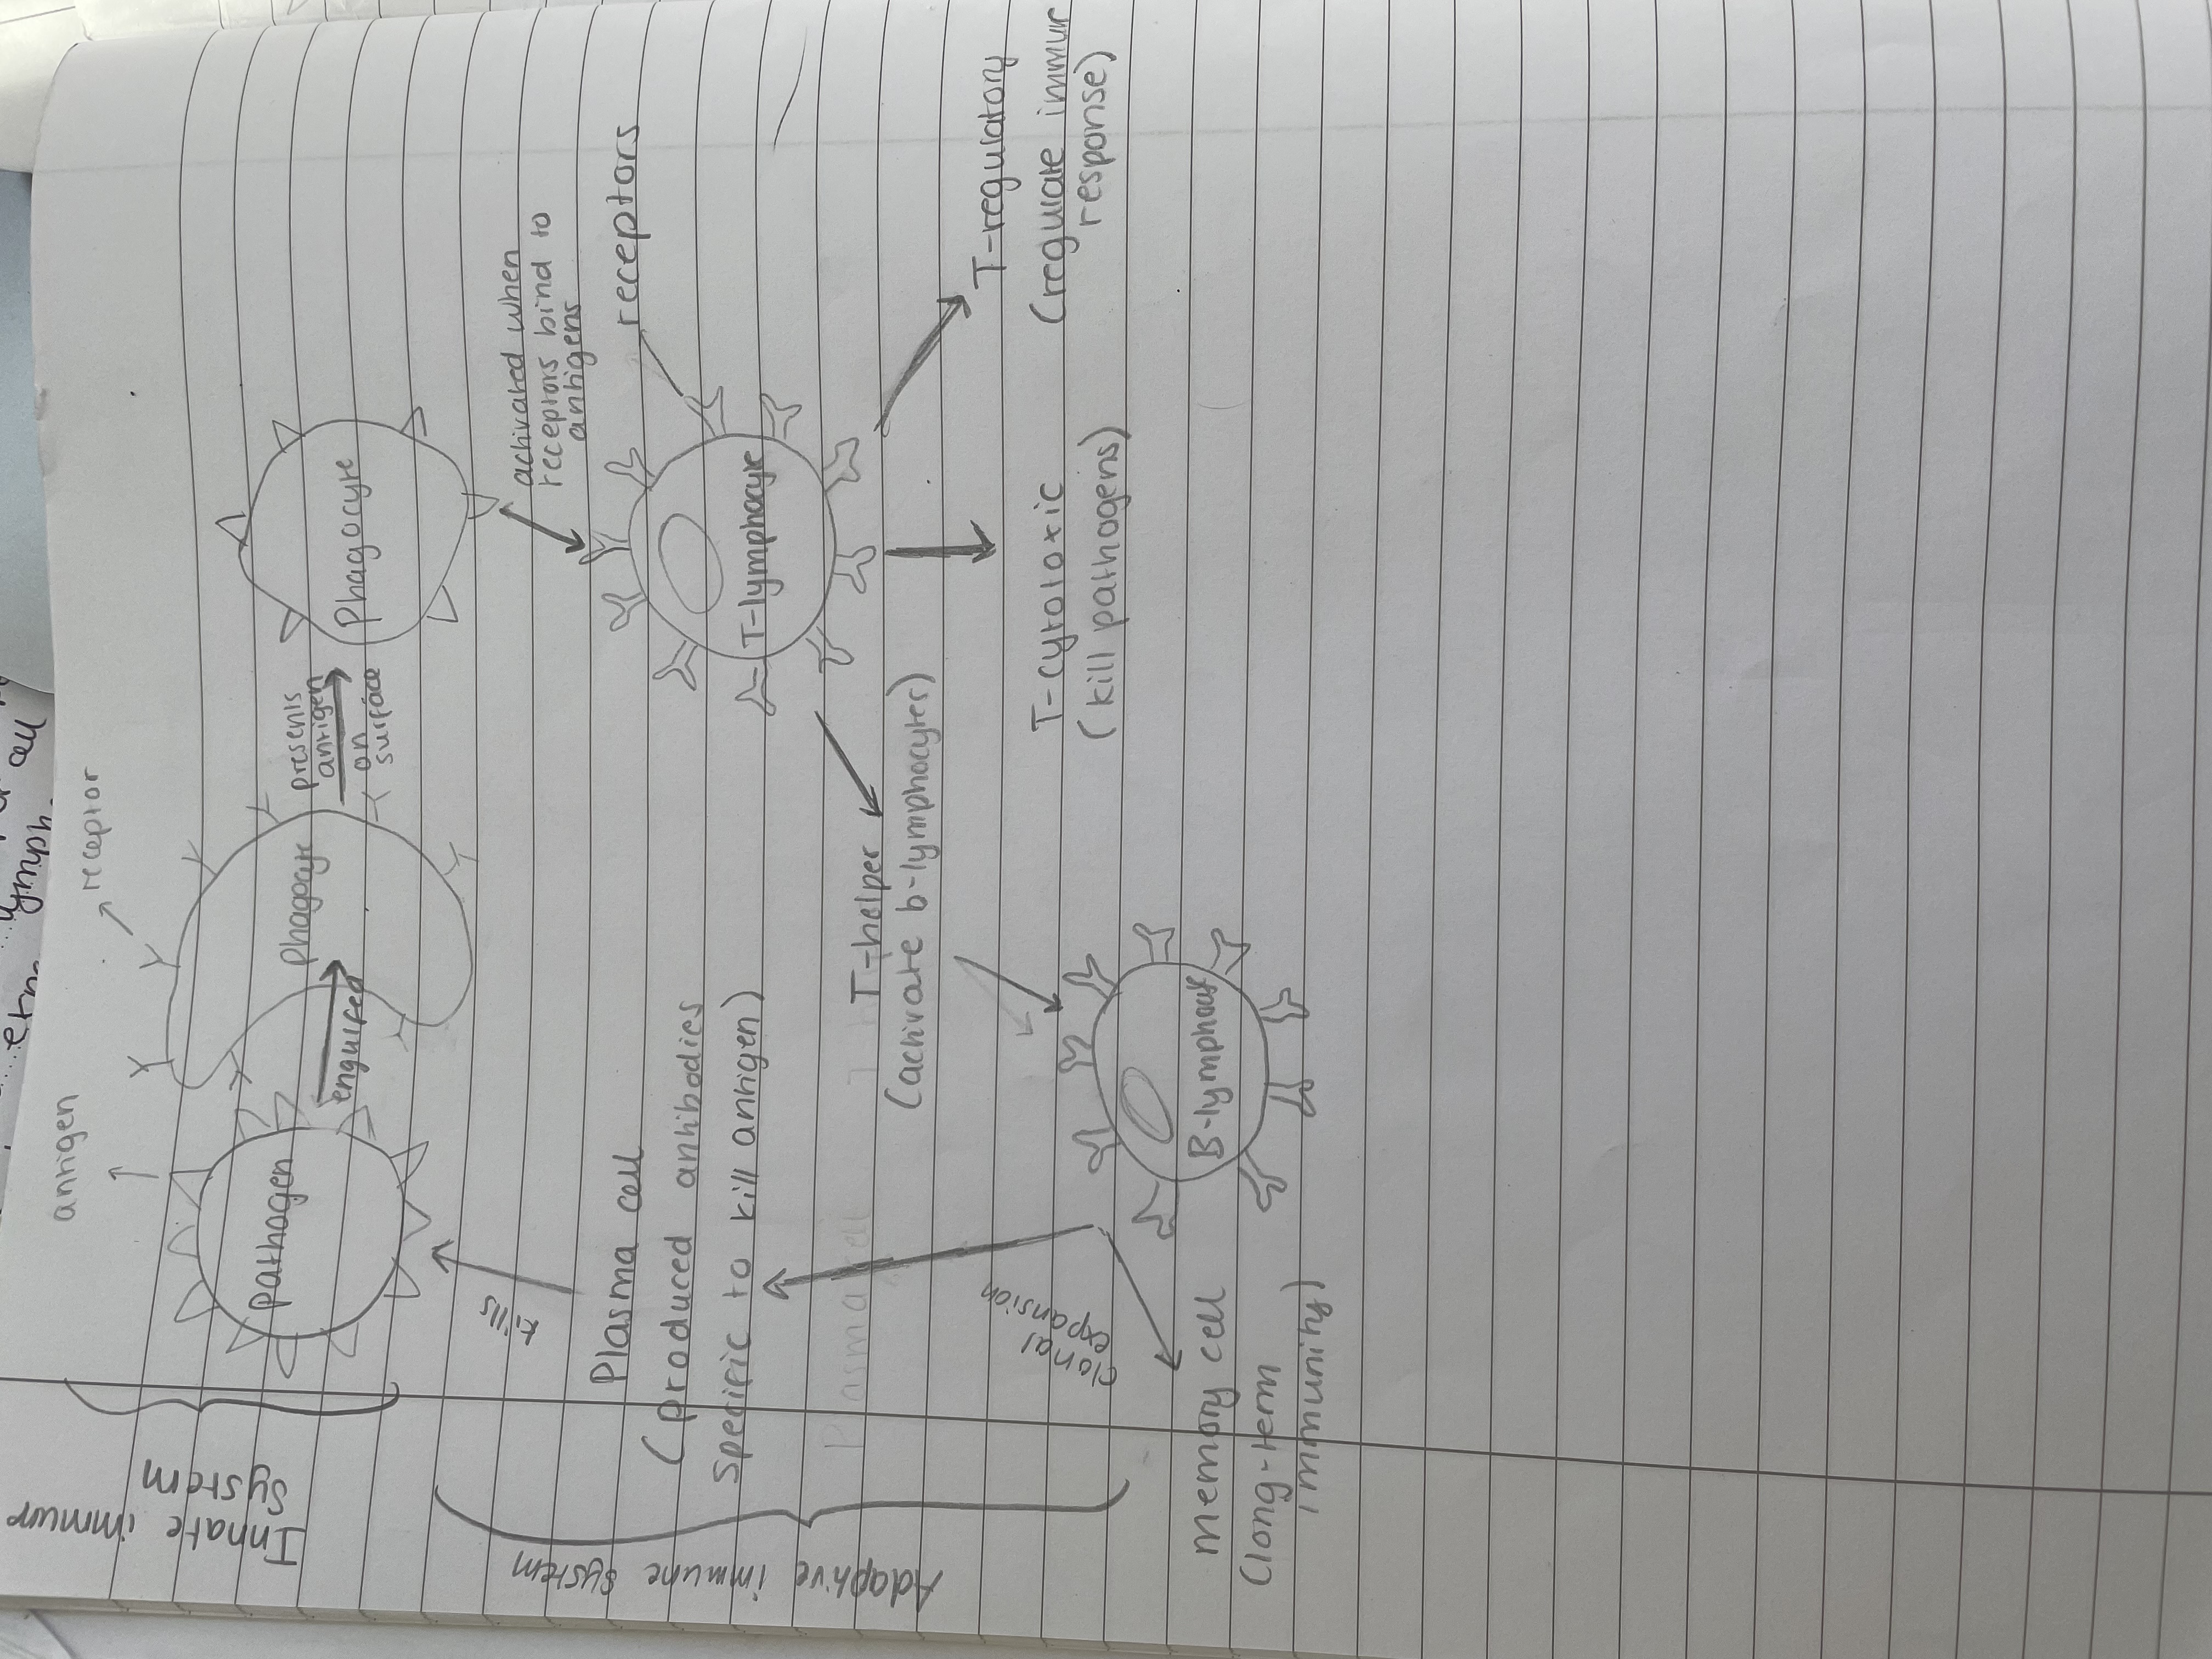 antigen
receptor
Pathogen
engulfed
Phagocyte
presents
antigen
on
surface
Phagocyte
Innate immun
system
activated when
receptors bind to
antigens
receptors
T-lymphocyte
kills
Plasma cell
(produced antibodies
specific to kill antigen)
Plasma cell
T-helper
(activate b-lymphocytes)
T-cytotoxic
(kill pathogens)
T-regulatory
(regulate immun
response)
Adaptive immune system
clonal
expansion
B-lymphocyt
memory cell
(long-term
immunity)
cell
lymph